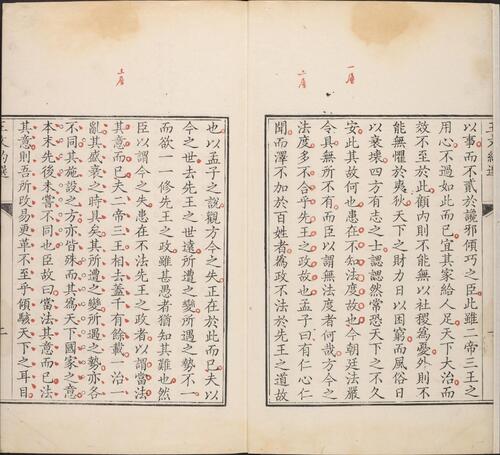 一層
二層
王文約選
以事而不貳於讒邪傾巧之臣此雖二帝三王之
用心不過如此而已宜其家給人足天下大治而
效不至於此顧內則不能無以社稷為憂外則不
能無懼於夷狄天下之財力日以困窮而風俗日
以衰壞四方有志之士諰諰然常恐天下之不久
安此其故何也患在不知法度故也今朝廷法嚴
令具無所不有而臣以謂無法度者何哉方今之
法度多不合乎先王之政故也孟子曰有仁心仁
聞而澤不加於百姓者為政不法於先王之道故
也以孟子之說觀方今之失正在於此而已夫以
今之世去先王之世遠所遭之變所遇之勢不一
而欲一一修先王之政雖甚愚者猶知其難也然
臣以謂今之失患在不法先王之政者以謂當法
其意而已夫二帝三王相去蓋千有餘載一治一
亂其盛衰之時具矣其所遭之變所遇之勢亦各
不同其施設之方亦皆殊而其為天下國家之意
本末先後未嘗不同也臣故曰當法其意而已法
其意則吾所改易更革不至乎傾駭天下之耳目
王文約選
二